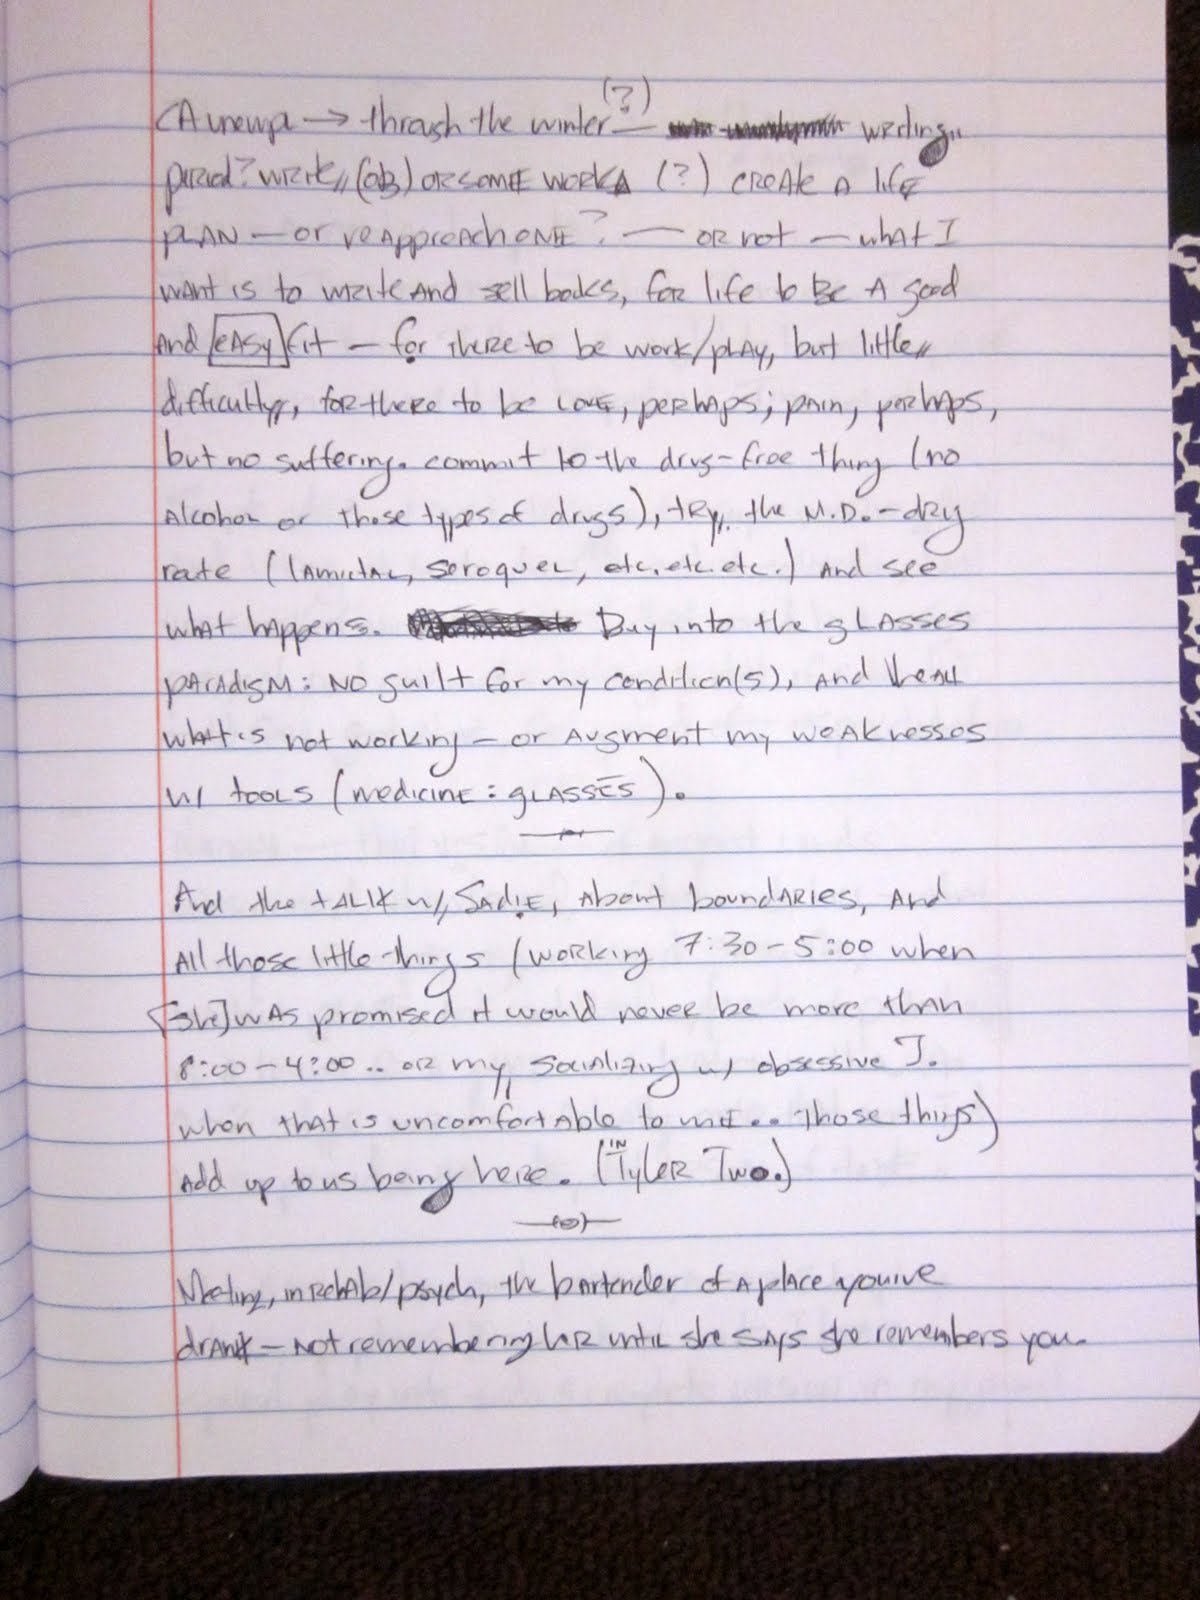 through the winter (?) — writing,,
period? write,, (ob) or some work (?) create a life
plan — or reapproach one? — or not — what I
want is to write and sell books, for life to be a good
and [easy] fit — for there to be work/play, but little,,
difficulty,, for there to be love, perhaps; pain, perhaps,
but no suffering. commit to the drug-free thing (no
alcohol or those types of drugs), try,, the M.D.-drug
route (lamictal, seroquel, etc. etc. etc.) and see
what happens. Buy into the glasses
paradigm: no guilt for my condition(s), and treat
what is not working — or augment my weaknesses
w/ tools (medicine : glasses).
And the talk w/ Sadie, about boundaries, and
all those little things (working 7:30-5:00 when
[she] was promised it would never be more than
8:00-4:00.. or my,, socializing w/ obsessive J.
when that is uncomfortable to me.. those things)
add up to us being here. (in Tyler Two.)
Meeting, in rehab/psych, the bartender of a place you've
drank — not remembering her until she says she remembers you.